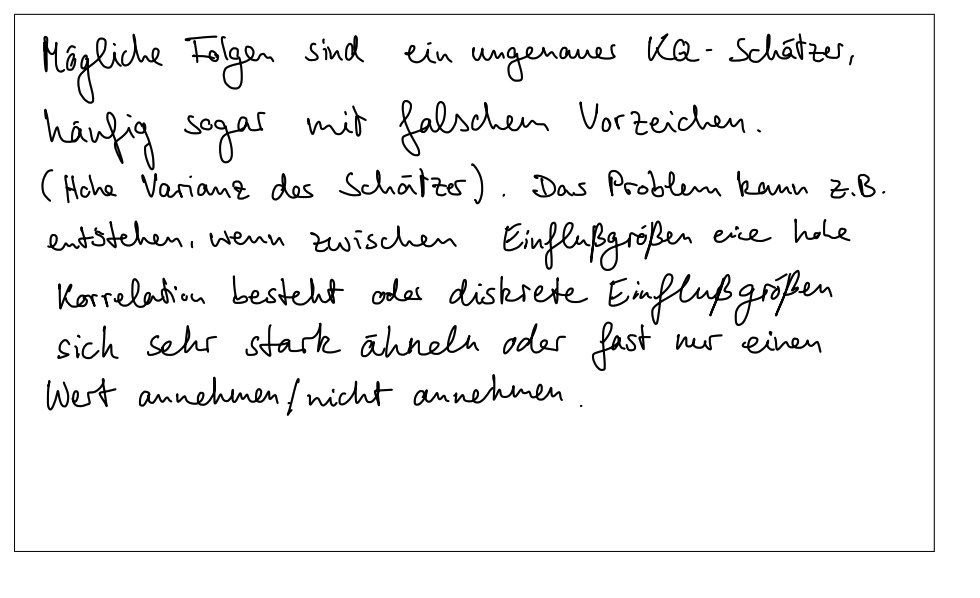 Mögliche Folgen sind ein ungenauer KQ-Schätzer,
häufig sogar mit falschem Vorzeichen.
(Hohe Varianz des Schätzer). Das Problem kann z.B.
entstehen, wenn zwischen Einflußgrößen eine hohe
Korrelation besteht oder diskrete Einflußgrößen
sich sehr stark ähneln oder fast nur einen
Wert annehmen/nicht annehmen.